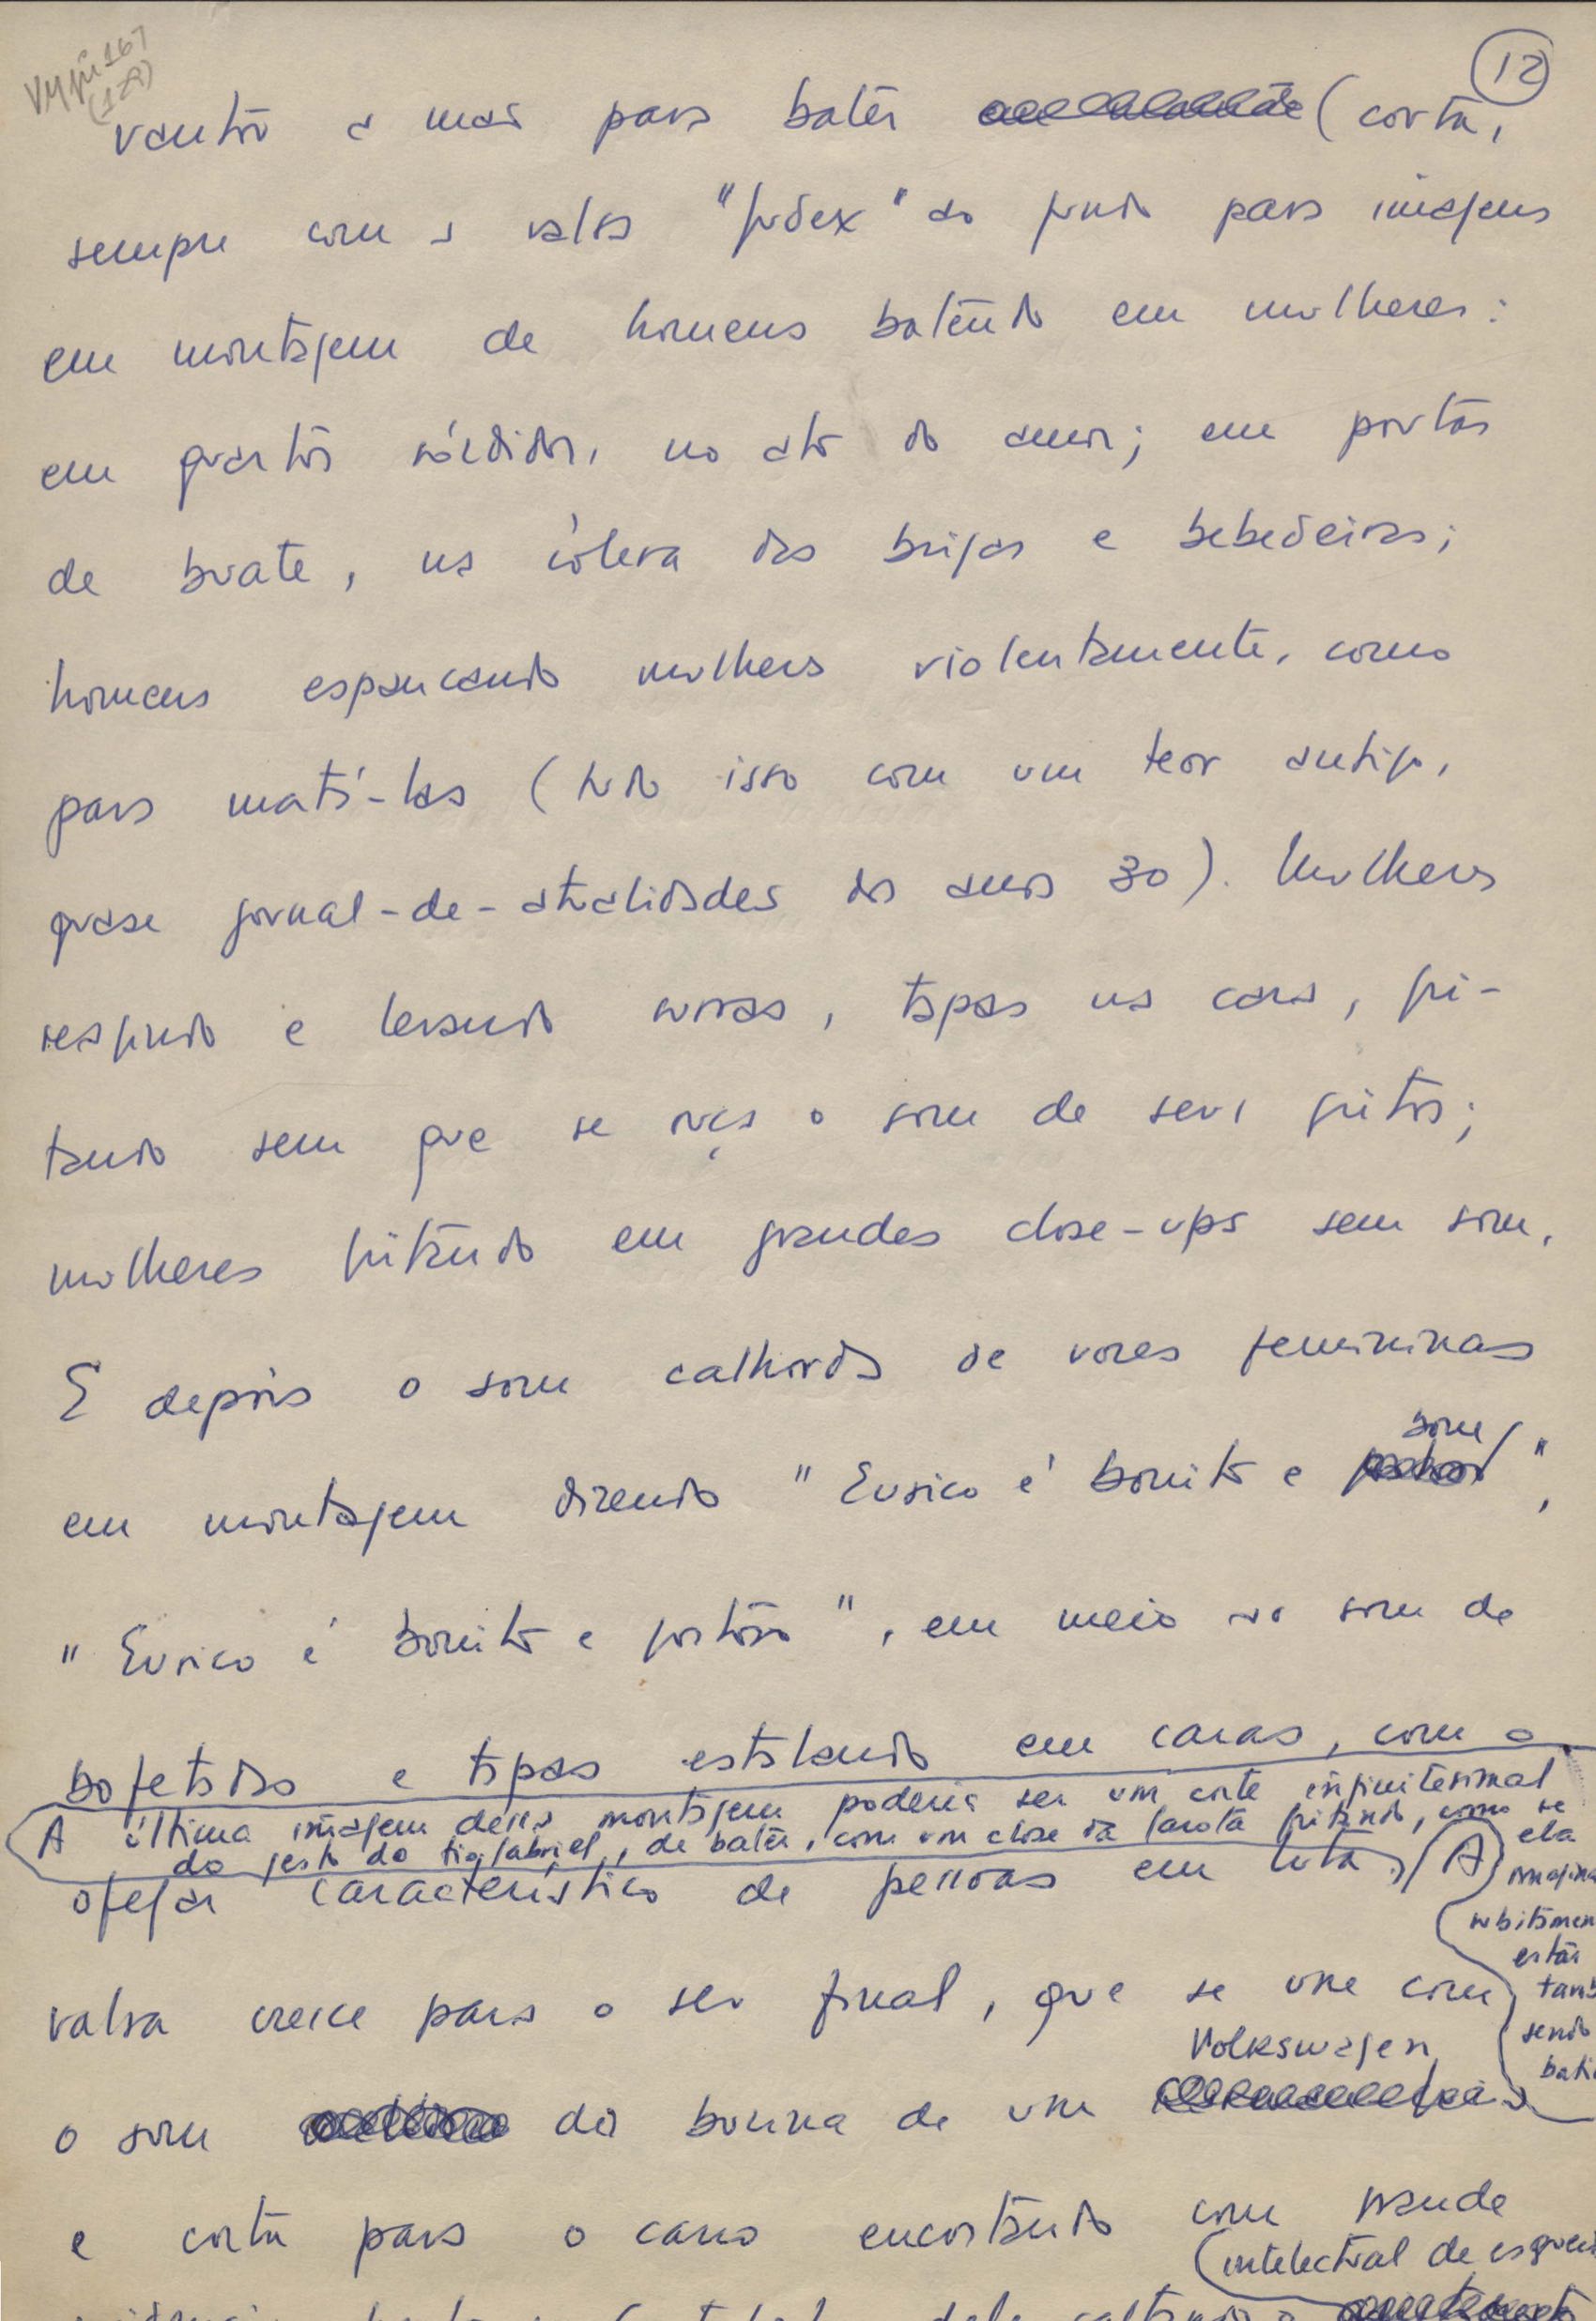 12
vanta a mão para bater (corta,
sempre com a valsa "Judex" ao fundo para imagens
em montagem de homens batendo em mulheres:
em quartos sórdidos, no ato do amor; em portas
de boate, na cólera das brigas e bebedeiras;
homens espancando mulheres violentamente, como
para matá-las (tudo isso com um teor antigo,
quase jornal-de-atualidades dos anos 30). Mulheres
reagindo e levando surras, tapas na cara, gri-
tando sem que se ouça o som de seus gritos;
mulheres gritando em grandes close-ups sem som.
E depois o som calhorda de vozes femininas
em montagem dizendo "Eurico é bonito e
som
"Eurico é bonito e gostoso", em meio ao som de
bofetadas e tapas estalando em caras, com o
A última imagem dessa montagem poderia ser um corte infinitesimal
do gesto do tio Gabriel, de bater, com um close da garota gritando, como se
ela
imagina
subitamen
estar
tamb
sendo
bati
ofegar característico de pessoas em luta. A
valsa cresce para o seu final, que se une com
Volkswagen
o som da buzina de um
e corta para o carro encostando com grande
(intelectual de esquer